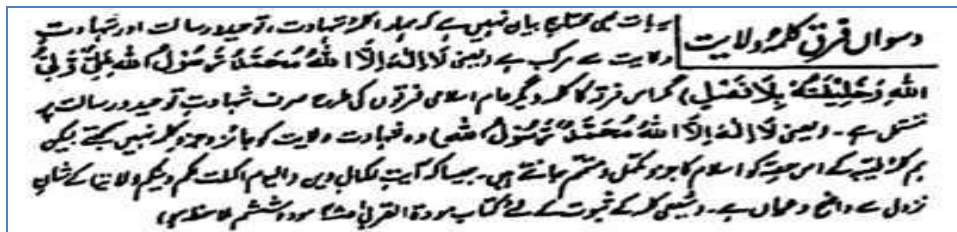 دسواں فرق کلمۂ ولایت
یہ بات بھی محتاج بیان نہیں ہے کہ ہمارا کلمۂ شہادت، توحید و رسالت اور شہادتِ
ولایت سے مرکب ہے (یعنی لَا اِلٰہَ اِلَّا اللہُ مُحَمَّدٌ رَّسُوْلُ اللہِ عَلِیٌّ وَّلِیُّ
اللہِ وَخَلِیْفَتُہٗ بِلَا فَصْلٍ) مگر اس فرقہ کا کلمہ دیگر عام اسلامی فرقوں کی طرح صرف شہادتِ توحید و رسالت پر
مشتمل ہے۔ (یعنی لَا اِلٰہَ اِلَّا اللہُ مُحَمَّدٌ رَّسُوْلُ اللہِ) وہ شہادت ولایت کو جائز و جزو کلمہ نہیں سمجھتے لیکن
ہم کلمۂ طیبہ کے اس حصہ کو اسلام کا جزو مکمل و متمم جانتے ہیں۔ جیسا کہ آیت اکمال دین (الیوم اکملت لکم دینکم ولایۃ) کے شانِ
نزول سے واضح و عیاں ہے۔ شیعی کلمہ کے ثبوت کے لئے کتاب مودۃ القربیٰ مودۃ ششم ملاحظہ ہو)